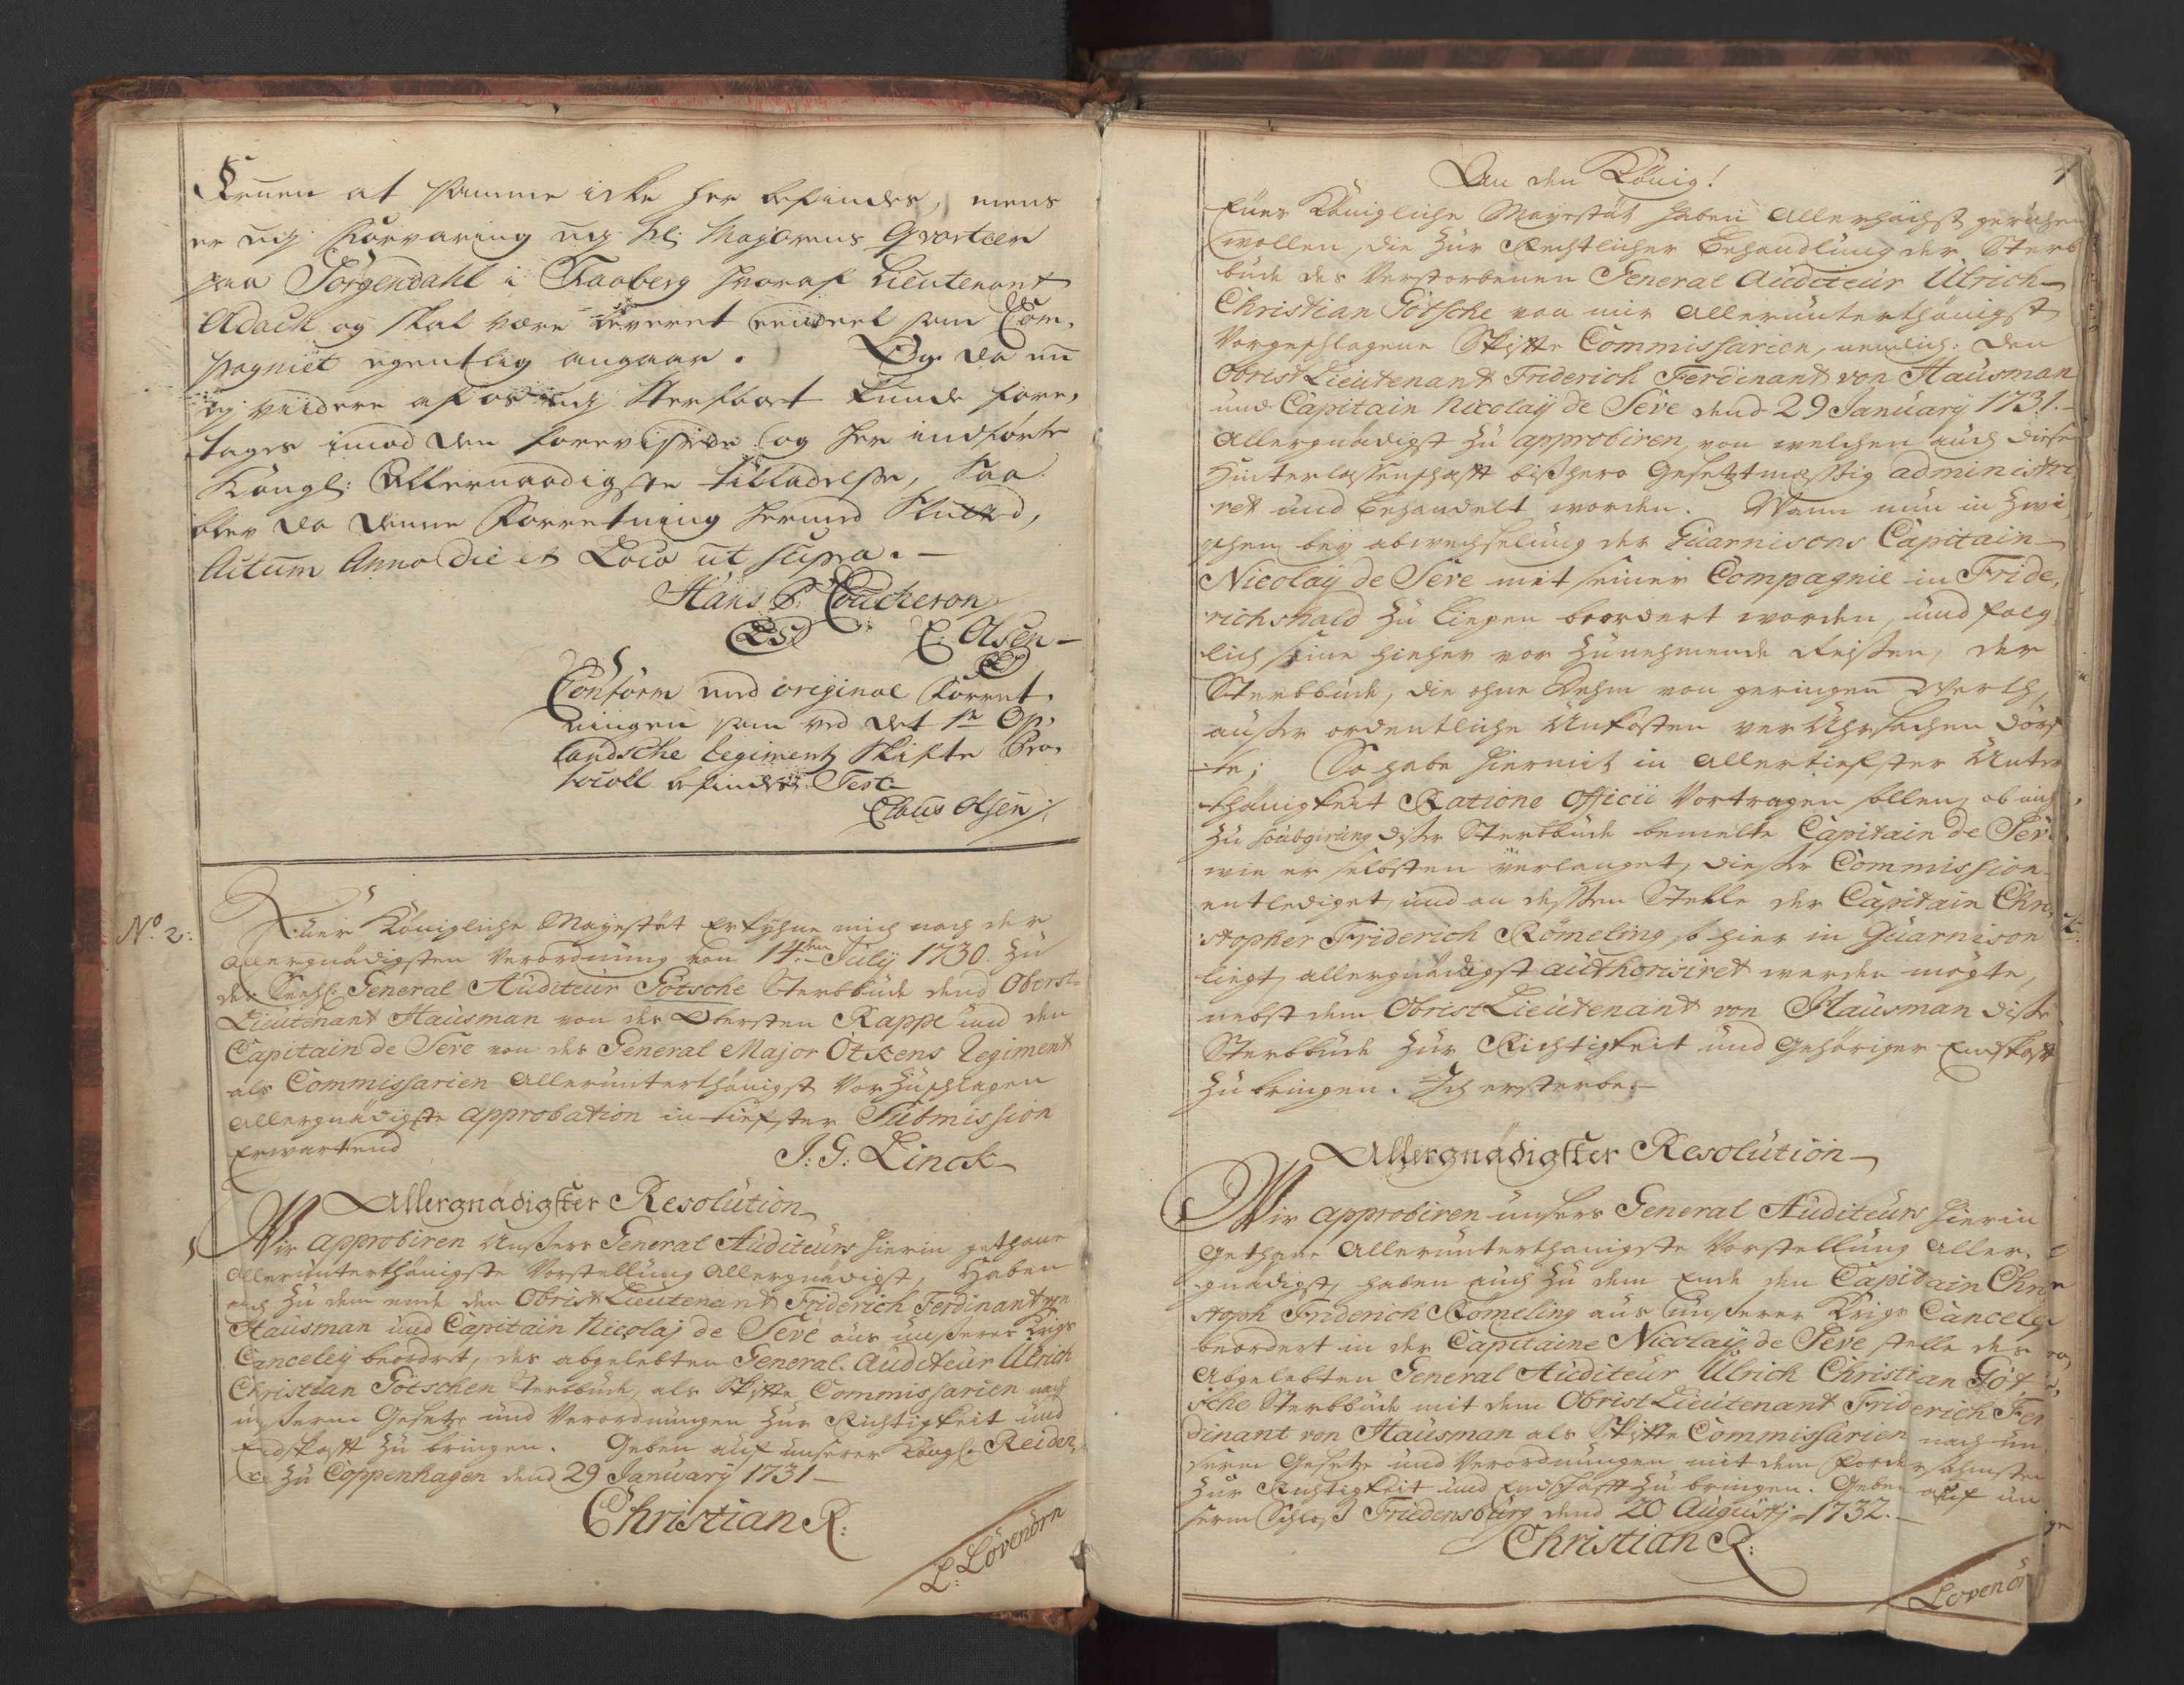 at samme icke her befindes, mens
er udj forvaring udj Hr: Majorens Qvarteer
paa Jörgendahl i Faaberg hvoraf Lieutenant
og skal være leveret eendeel som Com-
pagniet egentlig angaar. Og da nu
ej viidere af os udj Sterfboet kunde fore-
tages imod den foreviiste og her indförte
Kongl: Allernaadigste tilladelse, saa
blev da denne Forretning hermed Slutted,
Actum Anno Die et Loco ut supra.
Hans C: Coucheron
LS E: Olsen
LS
Conform med original Forret-
ningen som ved det 1te Op-
landsche Regimentz Skifte Pro-
tocoll befindes Test:
Claus Olsen
No. 2: Euer Königliche Mayestät Erkühne mich nach der
Allergnädigsten Verordnung von 14ten July 1730. Zu
der Seehl: General Auditeur Götsche Sterbbude dend Oberst-
Lieutenant Hausman von des Obersten Rappe und den
Capitain de Seve von des General Major Ötkens Regiment
als Commissarien Allerunterthänigst Vorzuschlagen
Allergnädigste approbation in tiefster Submission
Erwartend
J: G: Linck
Allergnädigster Resolution
Wir approbiren Unsers General Auditeurs hierin gethane
Allerunterthänigste Vorstellung Allergnädigst, Haben
auch zu dem ende den Obrist Lieutenant Friderich Ferdinant von
Hausman und Capitain Nicolaj de Seve aus unserer Krigs
Canceley beordret, des abgelebten General Auditeur Ulrich
Christian Götschen Sterbbude, als Skifte Commissarien nach
unserm Gesetze und Verordnungen zur Richtigkeit und
Endskafft zu bringen. Geben auf unserer Königl: Residen-
ce zu Coppenhagen dend 29 January 1731
Christian R:
L: Lövenörn
An den König!
Euer Königliche Mayestät haben Allerhöchst geruhen
wollen, die zur Rechtlicher Behandlung der Sterb
bude des Verstorbenen General Auditeur Ulrich
Christian Götsche von mir Allerunterthänigst
Vorgeschlagene Skifte Commissarien, nemlich: den
Obrist Lieutenant Friderich Ferdinant von Hausman
und Capitain Nicolaij de Seve dend 29 January 1731.
Allergnädigst zu approbiren, von welchen auch diese
Hinterlassenschafft bisshero Gesetzmässig administri
ret und behandelt worden. Wann nun in zwi
schen bey abwechselung der Guarnisons Capitain
Nicolaij de Seve mit seiner Compagnie in Fride-
richshald zu liegen beordert worden, und folg
lich seine hieher vor zunehmende Reisen, der
Sterbbude, die ohne dehm von geringen Werth,
ausser ordentliche Unkosten verUhrsachen dörf
te; So habe hiermit in Allertiefster Unter
thänigkeit Ratione Officii Vortragen sollen, ob nicht
zu dieser Sterbbude bemelte Capitain de Seve
wie er selbsten verlanget, dieser Commission
entlediget, und an dessen Stelle der Capitain Chri-
stopher Friderich Römeling so hier in Guarnison
liegt, allergnädigst authorisiret werden mögte,
nebst dem Obrist Lieutenant von Hausman diese
Sterbbude zur Richtigkeit und Gehöriger Endskafft
zu bringen. Ich ersterbe
Allergnädigster Resolution
Wir approbiren unsers General Auditeurs hierin
Gethane Allerunterthänigste Vorstellung Aller-
gnädigst, haben auch zu dem Ende den Capitain Chri
stoph Friderich Römeling aus unserer Krigs Canceley
beordert in der Capitaine Nicolaij de Seve stelle des
Abgelebten General Auditeur Ulrich Christian Göt
sche Sterbbude mit dem Obrist Lieutenant Friderich Fer
dinant von Hausman als Skifte Commissarien nach un
serm Gesetze und Verordnungen mit dem Fordersahmsten
zur Richtigkeit und Endschafft zu bringen. Geben auf un
serm Schloss Friedensburg dend 20 Augustj 1732.
Christian R:
Lövenör